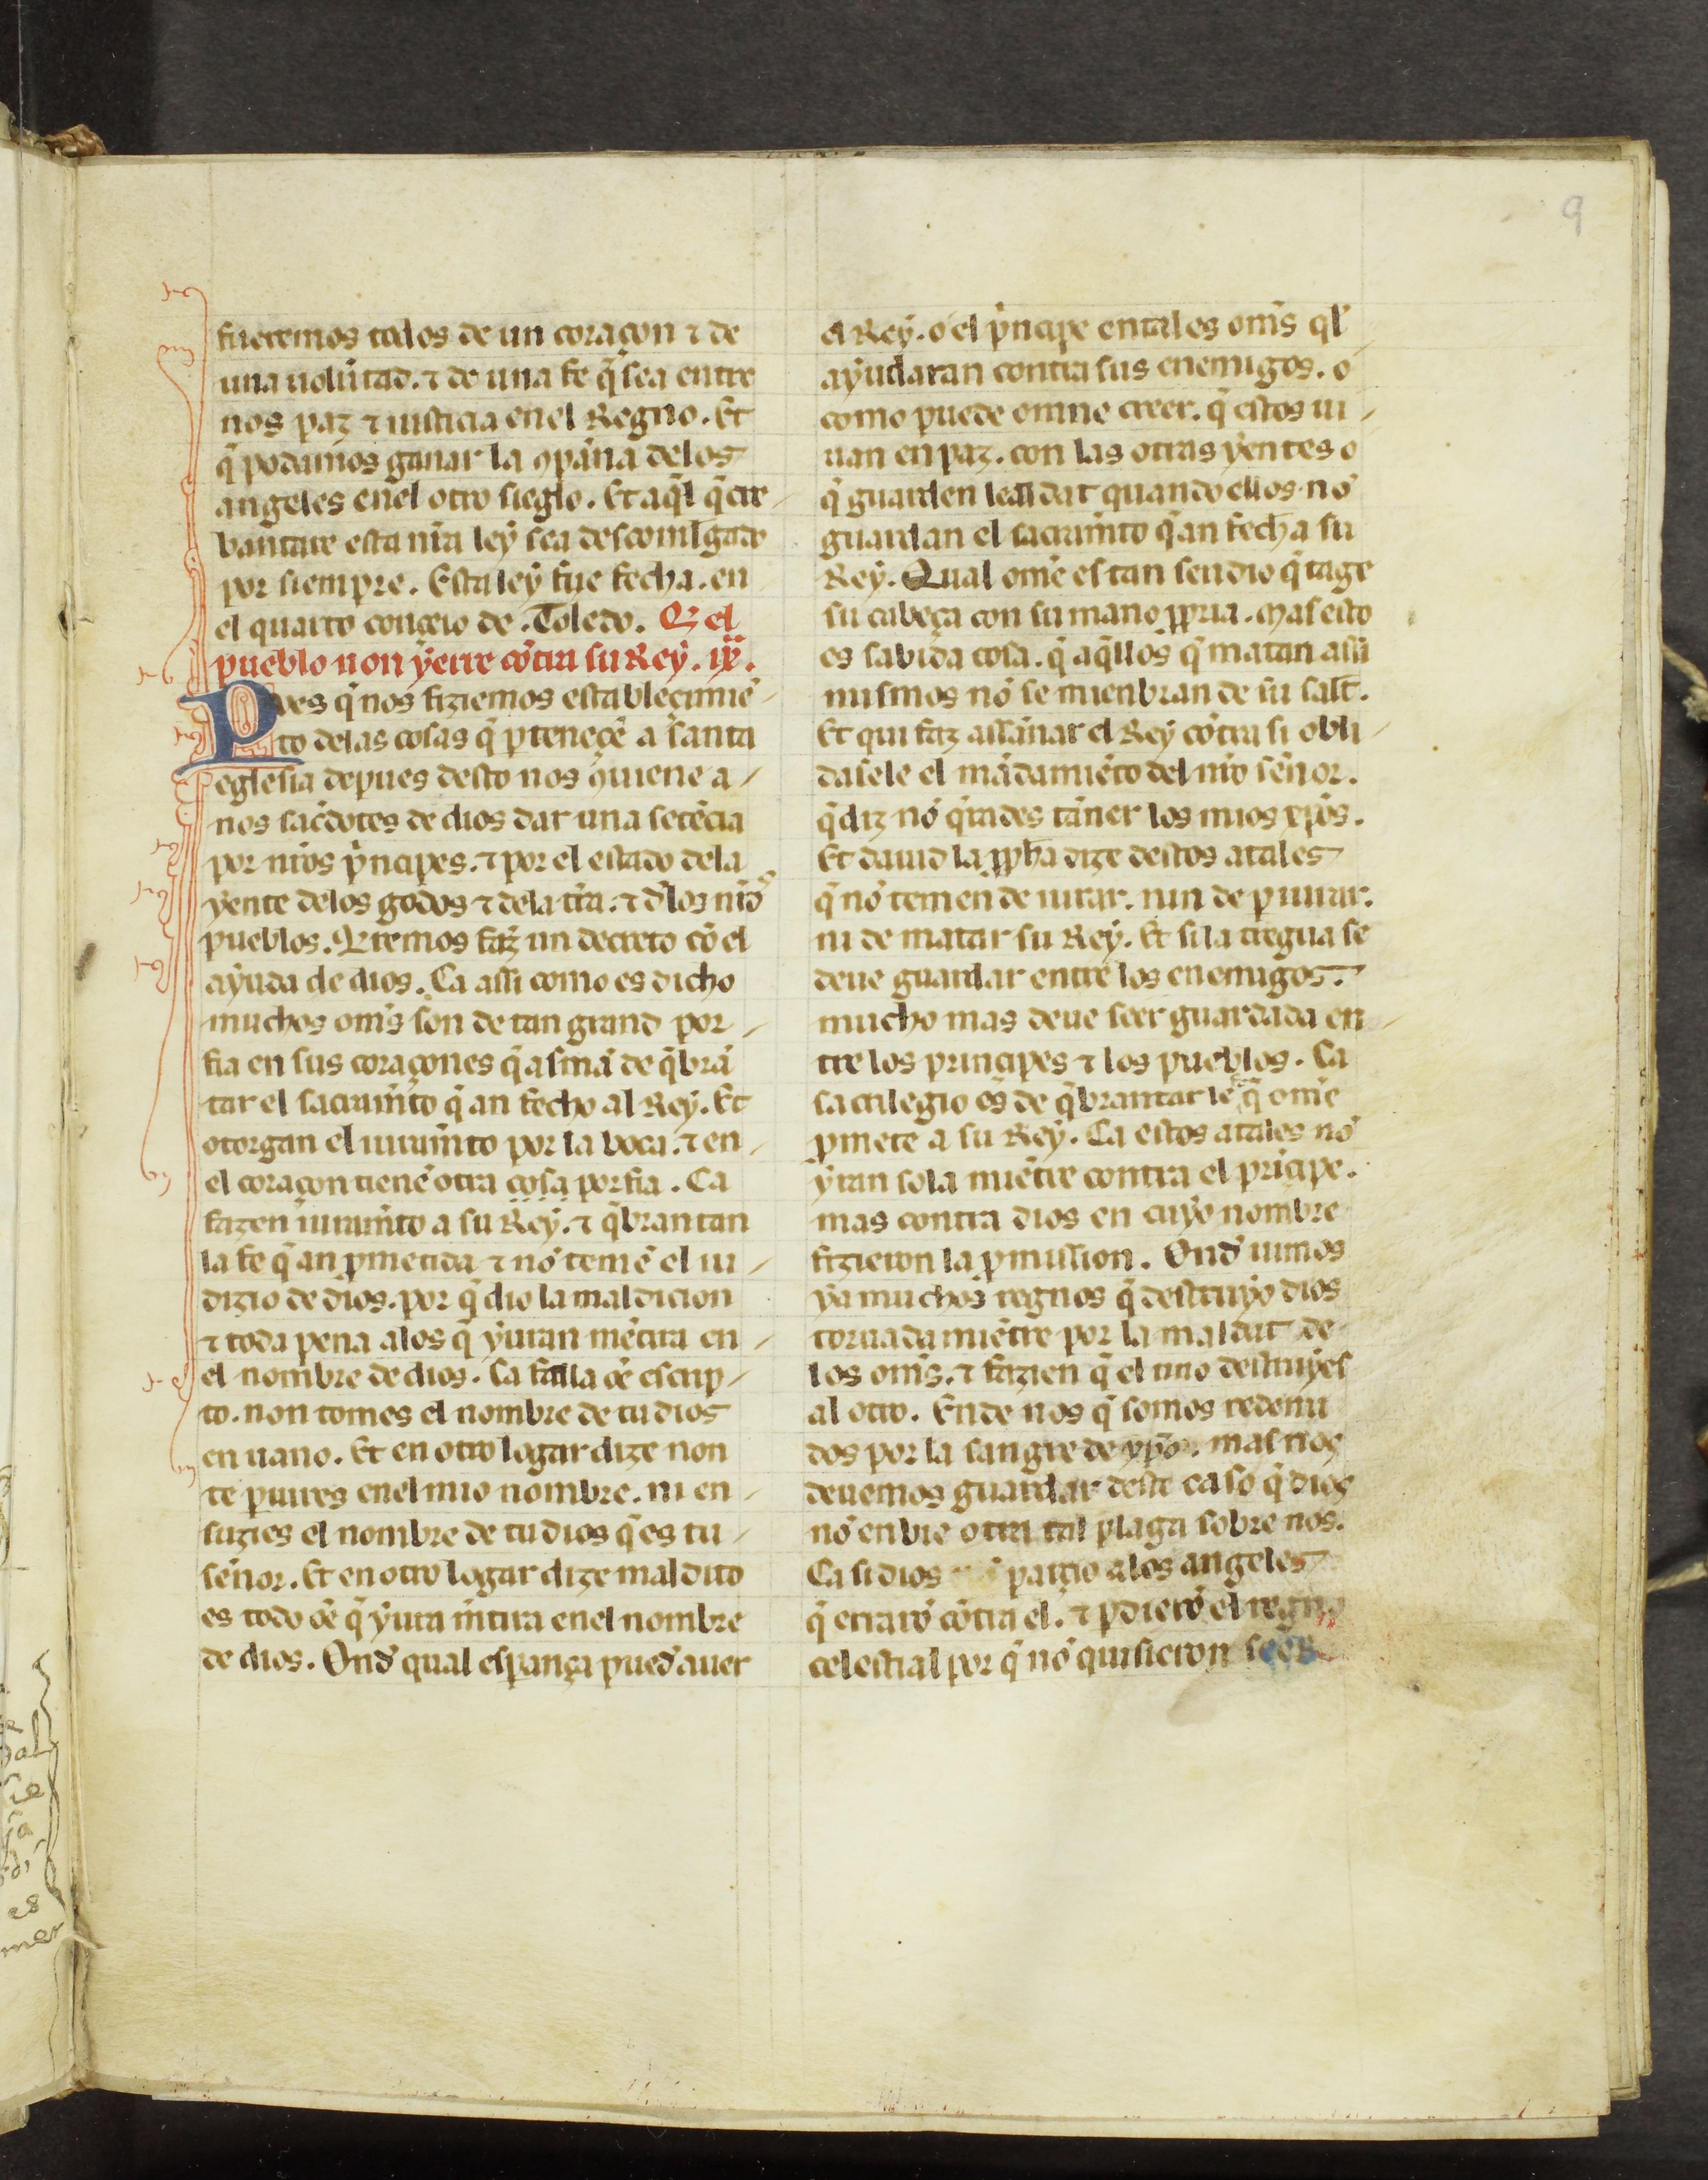 9
fueremos todos de un coraçon ⁊ de
una uolũtad. ⁊ de una fe q̃ sea entre
nos paz ⁊ iusticia enel Regno. Et
q̃ podamos ganar la ꝯpãna delos
angeles enel otro sieglo. Et aq̃l q̃ cre
bantare esta nr̃a leẏ sea descomulgado
por siempre. Esta leẏ fue fecha. en
el quarto conçeio de. Toledo. Q̃ el
pueblo non ẏerre cõtra su Reẏ. ix.
Pues q̃ nos fiziemos estableçimiẽ
to delas cosas q̃ ꝑteneçẽ a santa
eglesia depues desto nos ꝯuiene a
nos sac̃dotes de dios dar una setẽcia
por nr̃os pͥncipes. ⁊ por el estado dela
ẏente delos godos ⁊ dela tr̃ra. ⁊ d̃ los nr̃os
pueblos. Q̃remos faz̃ un decreto cõ el
aẏuda de dios. Ca assi como es dicho
muchos om̃s son de tan grand por
fia en sus coraçones q̃ asmã de q̃brã
tar el sacramẽto q̃ an fecho al Reẏ. Et
otorgan el iuramẽto por la boca. ⁊ en
el coraçon tienẽ otra cosa porfia. Ca
fazen iuramẽto a su Reẏ. ⁊ q̃brantan
la fe q̃ an ꝓmetida ⁊ nõ temẽ el iu
dizio de dios. por q̃ dio la maldicion
⁊ toda pena alos q̃ ẏuran mẽtira en
el nombre de dios. Ca falla õe escrip
to. non tomes el nombre de tu dios
en uano. Et en otro logar dize non
te ꝑiures enel mio nombre. ni en
suzies el nombre de tu dios q̃ es tu
sẽnor. Et en otro logar dize maldito
es todo õe q̃ ẏura m̃tira enel nombre
de dios. Ond̃ qual esꝑança pued̃ auer
el Reẏ. o el pͥncipe en tales om̃s ql̃
aẏudaran contra sus enemigos. o
como puede omne creer. q̃ estos ui
uan en paz. con las otras ẏentes o
q̃ guarden lealdat quando ellos nõ
guardan el sacramẽto q̃ an fecho a su
Reẏ. Qual om̃e es tan sendio q̃ tage
su cabeça con su mano ꝓpria. Mas esto
es sabida cosa. q̃ aq̃llos q̃ matan assi
mismos nõ se mienbran de su salt̃.
Et qui faz assanar el Reẏ cõtra si obli
dasele el mãdamiẽto del nr̃o sẽnor.
q̃ diz nõ q̃rades tãner los mios xp̃os.
Et dauid la ꝓph̃a dize destos atales
q̃ nõ temen de iurar. nin de ꝑiurar.
ni de matar su Reẏ. Et si la tregua se
deue guardar entre los enemigos.
mucho mas deue seer guardada en
tre los principes ⁊ los pueblos. Ca
sacrilegio es de q̃brantar lo q̃ om̃e
ꝓmete a su Reẏ. Ca estos atales nõ
ẏran sola miẽtre contra el prĩcipe.
mas contra dios en cuẏo nombre
fizieron la ꝓmission. Ond̃ uimos
ẏa muchos regnos q̃ destruẏo dios
toruada miẽtre por la maldat de
los om̃s. ⁊ fazien q̃ el uno destruẏes
al otro. Ende nos q̃ somos redemi
dos por la sangre de xp̃o. mas nos
deuemos guardar deste caso q̃ dios
nõ enbie otra tal plaga sobre nos.
Ca si dios partio alos angeles
q̃ erraron cõtra el. ⁊ ꝑdierõ el regno
celestial por q̃ nõ quisieron seer